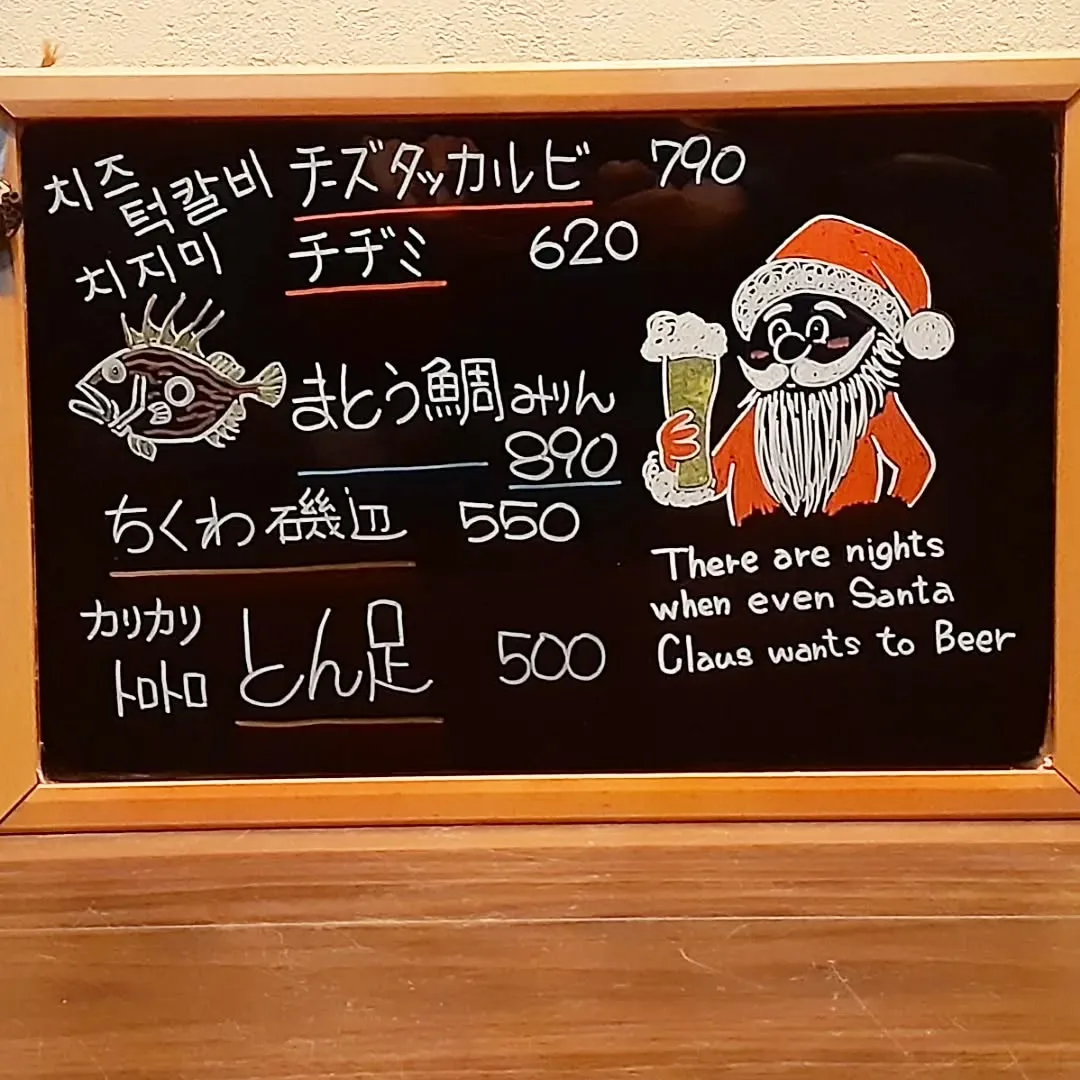 치즈 턱갈비 チーズタッカルビ 790
치지미 チヂミ 620
まとう鯛みりん
890
ちくわ磯辺 550
カリカリ
トロトロ とん足 500
There are nights
when even Santa
Claus wants to Beer